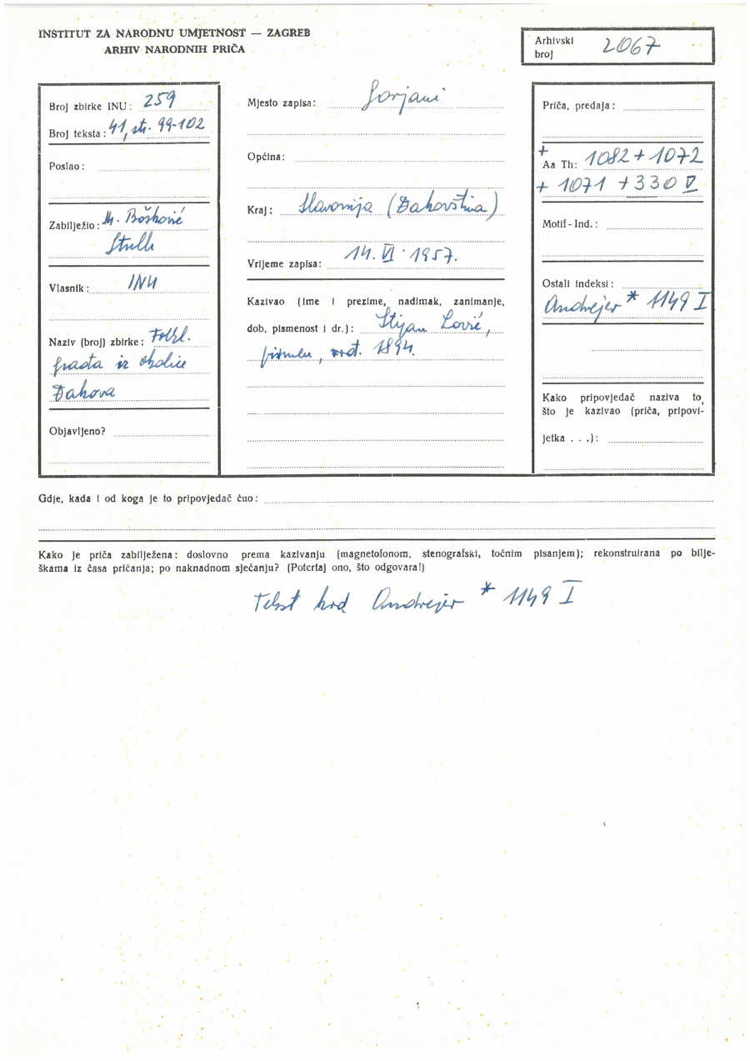 INSTITUT ZA NARODNU UMJETNOST — ZAGREB
ARHIV NARODNIH PRIČA
Arhivski broj 2067
Broj zbirke INU: 259
Broj teksta: 41, str. 99-102
Poslao:
Zabilježio: M. Bošković
Stulli
Vlasnik: INU
Naziv (broj) zbirke: Folkl.
građa iz okolice
Đakova
Objavljeno?
Mjesto zapisa: Gorjani
Općina:
Kraj: Slavonija (Đakovština)
Vrijeme zapisa: 14. VI. 1957.
Kazivao (ime i prezime, nadimak, zanimanje,
dob, pismenost i dr.): Stjepan Lović,
pismen, rođ. 1894.
Priča, predaja:
+
Aa Th: 1082 + 1072
+ 1071 + 330 V
Motif - Ind.:
Ostali indeksi:
Andrejev * 1149 I
Kako pripovjedač naziva to,
što je kazivao (priča, pripovi-
jetka . . .):
Gdje, kada i od koga je to pripovjedač čuo:
Kako je priča zabilježena: doslovno prema kazivanju (magnetofonom, stenografski, točnim pisanjem); rekonstruirana po bilje-
škama iz časa pričanja; po naknadnom sjećanju? (Potcrtaj ono, što odgovara!)
Tekst kod Andrejev * 1149 I